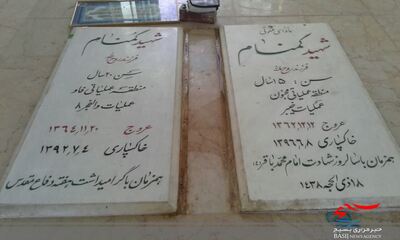 شهید گمنام
فرزند روح الله
سن: ۱۵ سال
منطقه عملیاتی مجنون
عملیات خیبر
عروج ۱۳۶۲,۱۲,۱۲
خاکسپاری ۱۳۹۶,۶,۸
همزمان با سالروز شهادت امام محمد باقر
۱۴۳۸
شهید گمنام
فرزند روح الله
سن: ۲۰ سال
منطقه عملیاتی فاو
عملیات والفجر ۸
عروج ۱۳۶۴,۱۱,۲۰
خاکسپاری ۱۳۹۲,۷,۴
همزمان با گرامیداشت هفته دفاع مقدس
خبرگزاری بسیج
BASIJ NEWS AGENCY